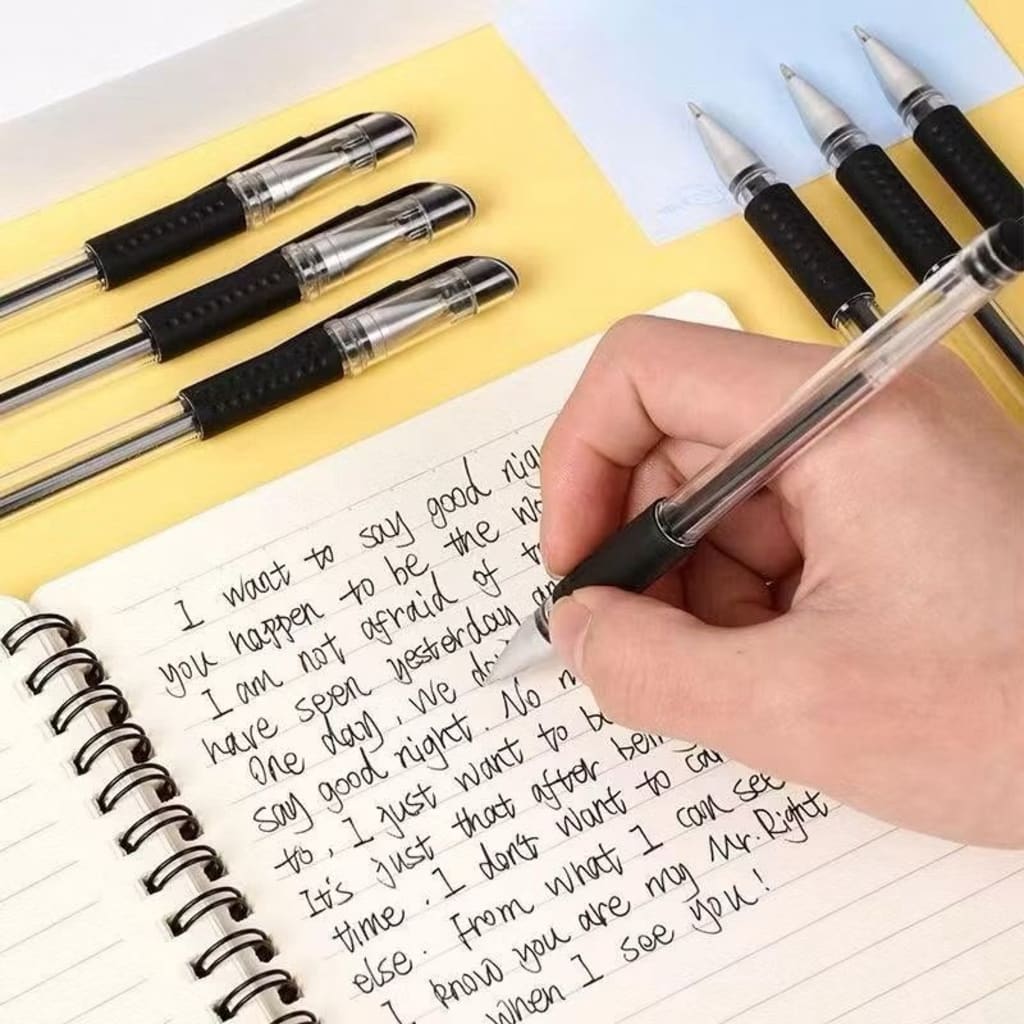 I want to say good nig
you happen to be the wo
I am not afraid of t
have seen yesterday an
One day, we do
say good night. No m
to, I just want to be
It's just that after bein
time. I don't want to ca
else. From what I can see
I know you are my Mr. Right
when I see you!